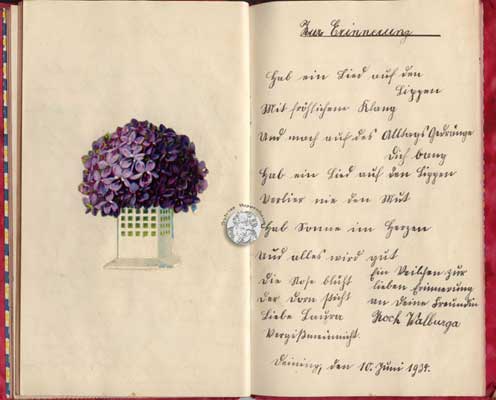 Zur Erinnerung
Hab ein Lied auf den
Lippen
Mit fröhlichem Klang
Und mach auf des Alltags Gedränge
Dich bang
Hab ein Lied auf den Lippen
Verlier nie den Mut
Hab Sonne im Herzen
Und alles wird gut
Die Rose blüht
der Dorn sticht
Liebe Laura
Vergißmeinnicht.
Ein Veilchen zur
lieben Erinnerung
an Deine Freundin
Koch Walburga
Deining, den 10. Juni 1934.